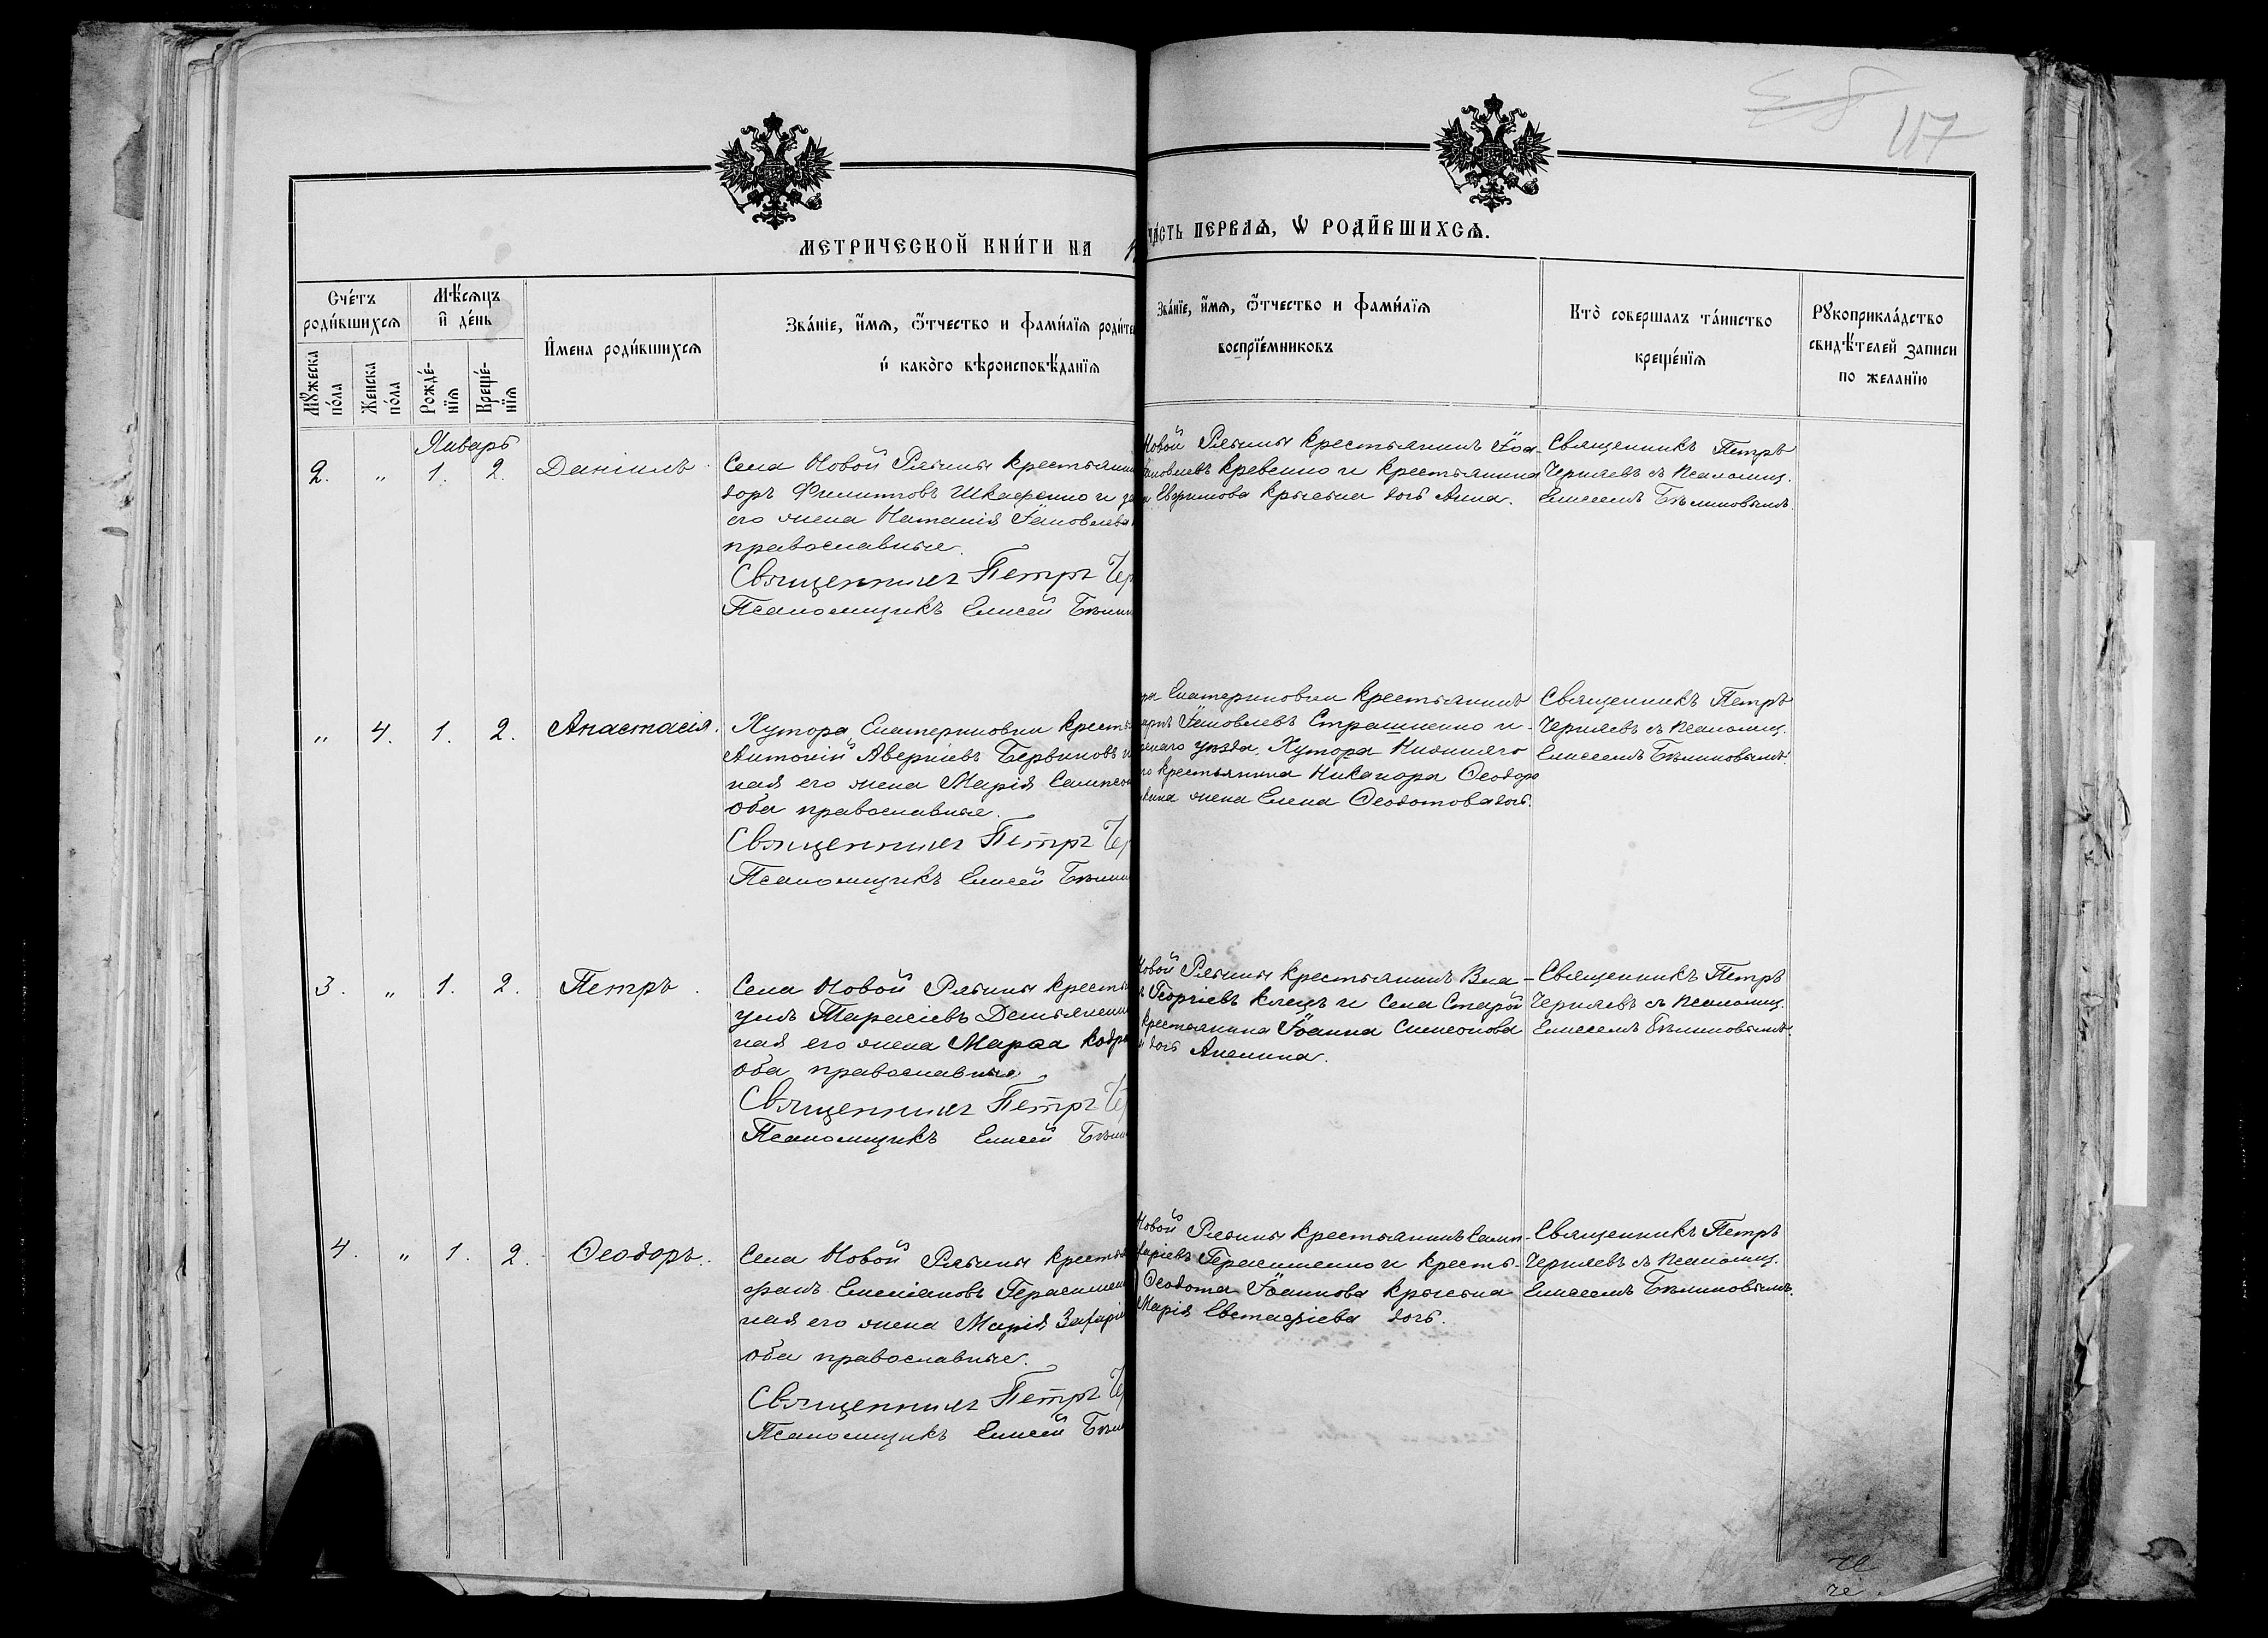 117
МЕТРИЧЕСКОЙ КНИ́ГИ НА
ЧА́СТЬ ПЕРВАѦ, Ѡ РОДИ́ВШИХСѦ.
Сче́тъ роди́вшихсѧ
Мѣ́сѧцъ и҆ де́нь
Мꙋ́жеска по́ла
Же́нска по́ла
Рожде́нїѧ
Креще́нїѧ
И҆мена роди́вшихсѧ
Зва́нїе, и҆́мѧ, ѻ҆́тчество и фами́лїѧ роди́те
и҆ како́го вѣроисповѣ́данїѧ
Зва́нїе, и҆́мѧ, ѻ҆́тчество и фами́лїѧ
воспрїе́мниковъ
Кто̀ соверша́лъ та́инство
креще́нїѧ
Рꙋкоприкла́дство
свидѣ́телей записи
по жела́нїю
Январь
2. „ 1. 2. Даніилъ.
Села Новой Рябины крестьянин
доръ Филипповъ и за
его жена Наталія Іаковлева
православные.
Священникъ Петръ Чер
Псаломщикъ Елисей Бѣлик
Новой Рябины крестьянинъ Іоа-
Іаковлевъ Кревенко и крестьянина
Евфимова Крысына дочь Анна.
Священникъ Петръ
Черняевъ съ псаломщ.
Елисеемъ Бѣликовымъ.
„ 4. 1. 2. Анастасія.
Хутора Екатериновки кресть
Антоній Аверкіевъ Бервиновъ и
ная его жена Марія Сампсон
оба православные.
Священникъ Петръ Чер
Псаломщикъ Елисей Бѣлик
Екатериновки крестьянинъ
Іаковлевъ Страшненко и
уѣзда, Хутора Нижняго
крестьянина Никанора Ѳеодоро
жена Елена Ѳеодотова дочь.
Священникъ Петръ
Черняевъ съ псаломщ.
Елисеемъ Бѣликовымъ.
3. „ 1. 2. Петръ.
Села Новой Рябины кресть
Тарасіевъ Демьяненк
ная его жена Марѳа Кодра
оба православные
Священникъ Петръ Че
Псаломщикъ Елисей Бѣлик
Новой Рябины крестьянинъ Вла-
Георгіевъ Клецъ и Села Старой
крестьянина Іоанна Симеонова
дочь Акилина.
Священникъ Петръ
Черняевъ съ псаломщ.
Елисеемъ Бѣликовымъ.
4. „ 1. 2. Ѳеодоръ.
Села Новой Рябины кресть
фанъ Емеліановъ Герасименк
ная его жена Марія Захарі
оба православные.
Священникъ Петръ Че
Псаломщикъ Елисей Бѣлик
Новой Рябины крестьянинъ Самп-
Герасименко и кресть-
Ѳеодота Іоаннова Крысына
Марія Евстафіева дочь.
Священникъ Петръ
Черняевъ съ псаломщ.
Елисеемъ Бѣликовымъ.